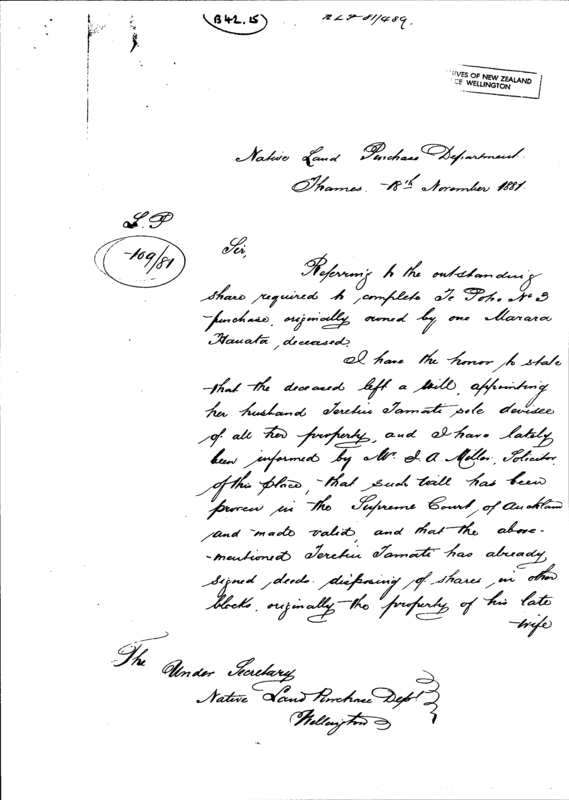 B42.15
NLP 81/489.
IVES OF NEW ZEALAND
CE WELLINGTON
Native Land Purchase Department.
Thames. 18th November 1881.
L.P
109/81
Sir,
Referring to the outstanding
share required to complete Te Poho No 3
purchase, originally owned by one Marara
Hauata, deceased.
I have the honor to state
that the deceased left a Will, appointing
her husband Teretiu Tamati sole devisee
of all her property, and I have lately
been informed by Mr. J. A. Miller, Solicitor,
of this place, that such Will has been
proven in the Supreme Court, of Auckland
and made valid, and that the above-
-mentioned Teretiu Tamati has already
signed deeds disposing of shares, in other
blocks, originally the property of his late
wife
The Under Secretary
Native Land Purchase Dept
Wellington